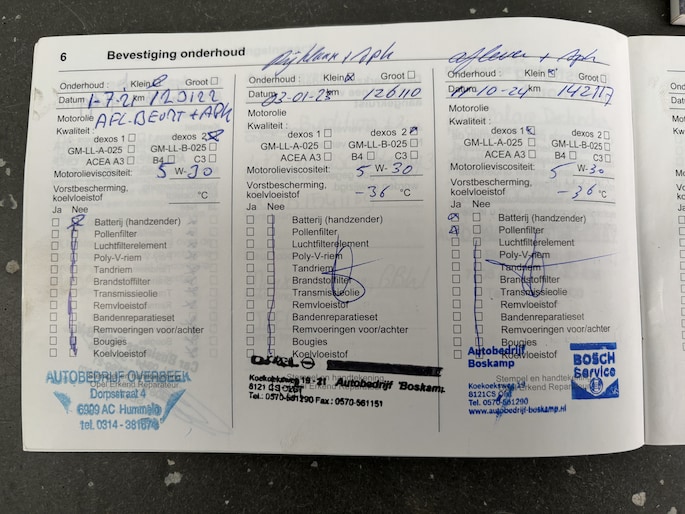 6 Bevestiging onderhoud
Onderhoud : Klein Groot
Datum 1-7.21 km 120122
Motorolie AFL-BEURT + APK
Kwaliteit :
dexos 1 dexos 2
GM-LL-A-025 GM-LL-B-025
ACEA A3 B4 C3
Motorolieviscositeit: 5 W- 30
Vorstbescherming,
koelvloeistof °C
Ja Nee
Batterij (handzender)
Pollenfilter
Luchtfilterelement
Poly-V-riem
Tandriem
Brandstoffilter
Transmissieolie
Remvloeistof
Bandenreparatieset
Remvoeringen voor/achter
Bougies
Koelvloeistof
AUTOBEDRIJF OVERBEEK
Opel Erkend Reparateur
Dorpsstraat 4
6999 AC Hummelo
tel. 0314 -
+ Apk
Onderhoud : Klein Groot
Datum 03-01-23 km 126110
Motorolie
Kwaliteit :
dexos 1 dexos 2
GM-LL-A-025 GM-LL-B-025
ACEA A3 B4 C3
Motorolieviscositeit: 5 W- 30
Vorstbescherming,
koelvloeistof -36 °C
Ja Nee
Batterij (handzender)
Pollenfilter
Luchtfilterelement
Poly-V-riem
Tandriem
Brandstoffilter
Transmissieolie
Remvloeistof
Bandenreparatieset
Remvoeringen voor/achter
Bougies
Koelvloeistof
OPEL
Koekoeksweg 19 - 21 Autobedrijf Boskamp
8121 CS
Tel.: 0570-561290 Fax : 0570-561151
aflever + Apk
Onderhoud : Klein Groot
Datum -10-24 km 142117
Motorolie
Kwaliteit :
dexos 1 dexos 2
GM-LL-A-025 GM-LL-B-025
ACEA A3 B4 C3
Motorolieviscositeit: 5 W- 30
Vorstbescherming,
koelvloeistof -36 °C
Ja Nee
Batterij (handzender)
Pollenfilter
Luchtfilterelement
Poly-V-riem
Tandriem
Brandstoffilter
Transmissieolie
Remvloeistof
Bandenreparatieset
Remvoeringen voor/achter
Bougies
Koelvloeistof
Autobedrijf
Boskamp
BOSCH
Service
Stempel en handtekening
Opel Erkend Reparateur
Koekoeksweg
8121CS
Tel. 0570-561290
www.autobedrijf-boskamp.nl